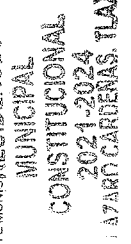 MUNICIPAL
CONSTITUCIONAL
2021-2024
LAZARO CARDENAS, TLAX